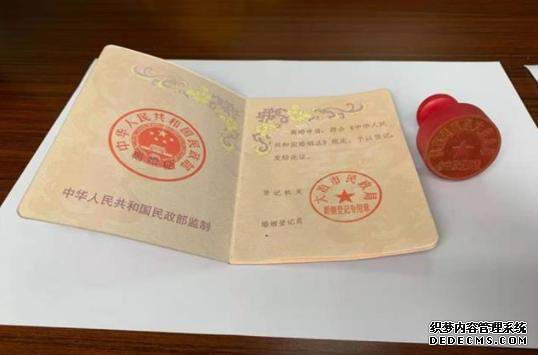 中华人民共和国民政部
中华人民共和国民政部监制
婚申请，符合《中华人民
共和国婚姻法》规定，予以登记，
发给此证。
登记机关
大冶市民政局
婚姻登记专用章
婚姻登记员
织梦内容管理系统
DEDECMS.COM